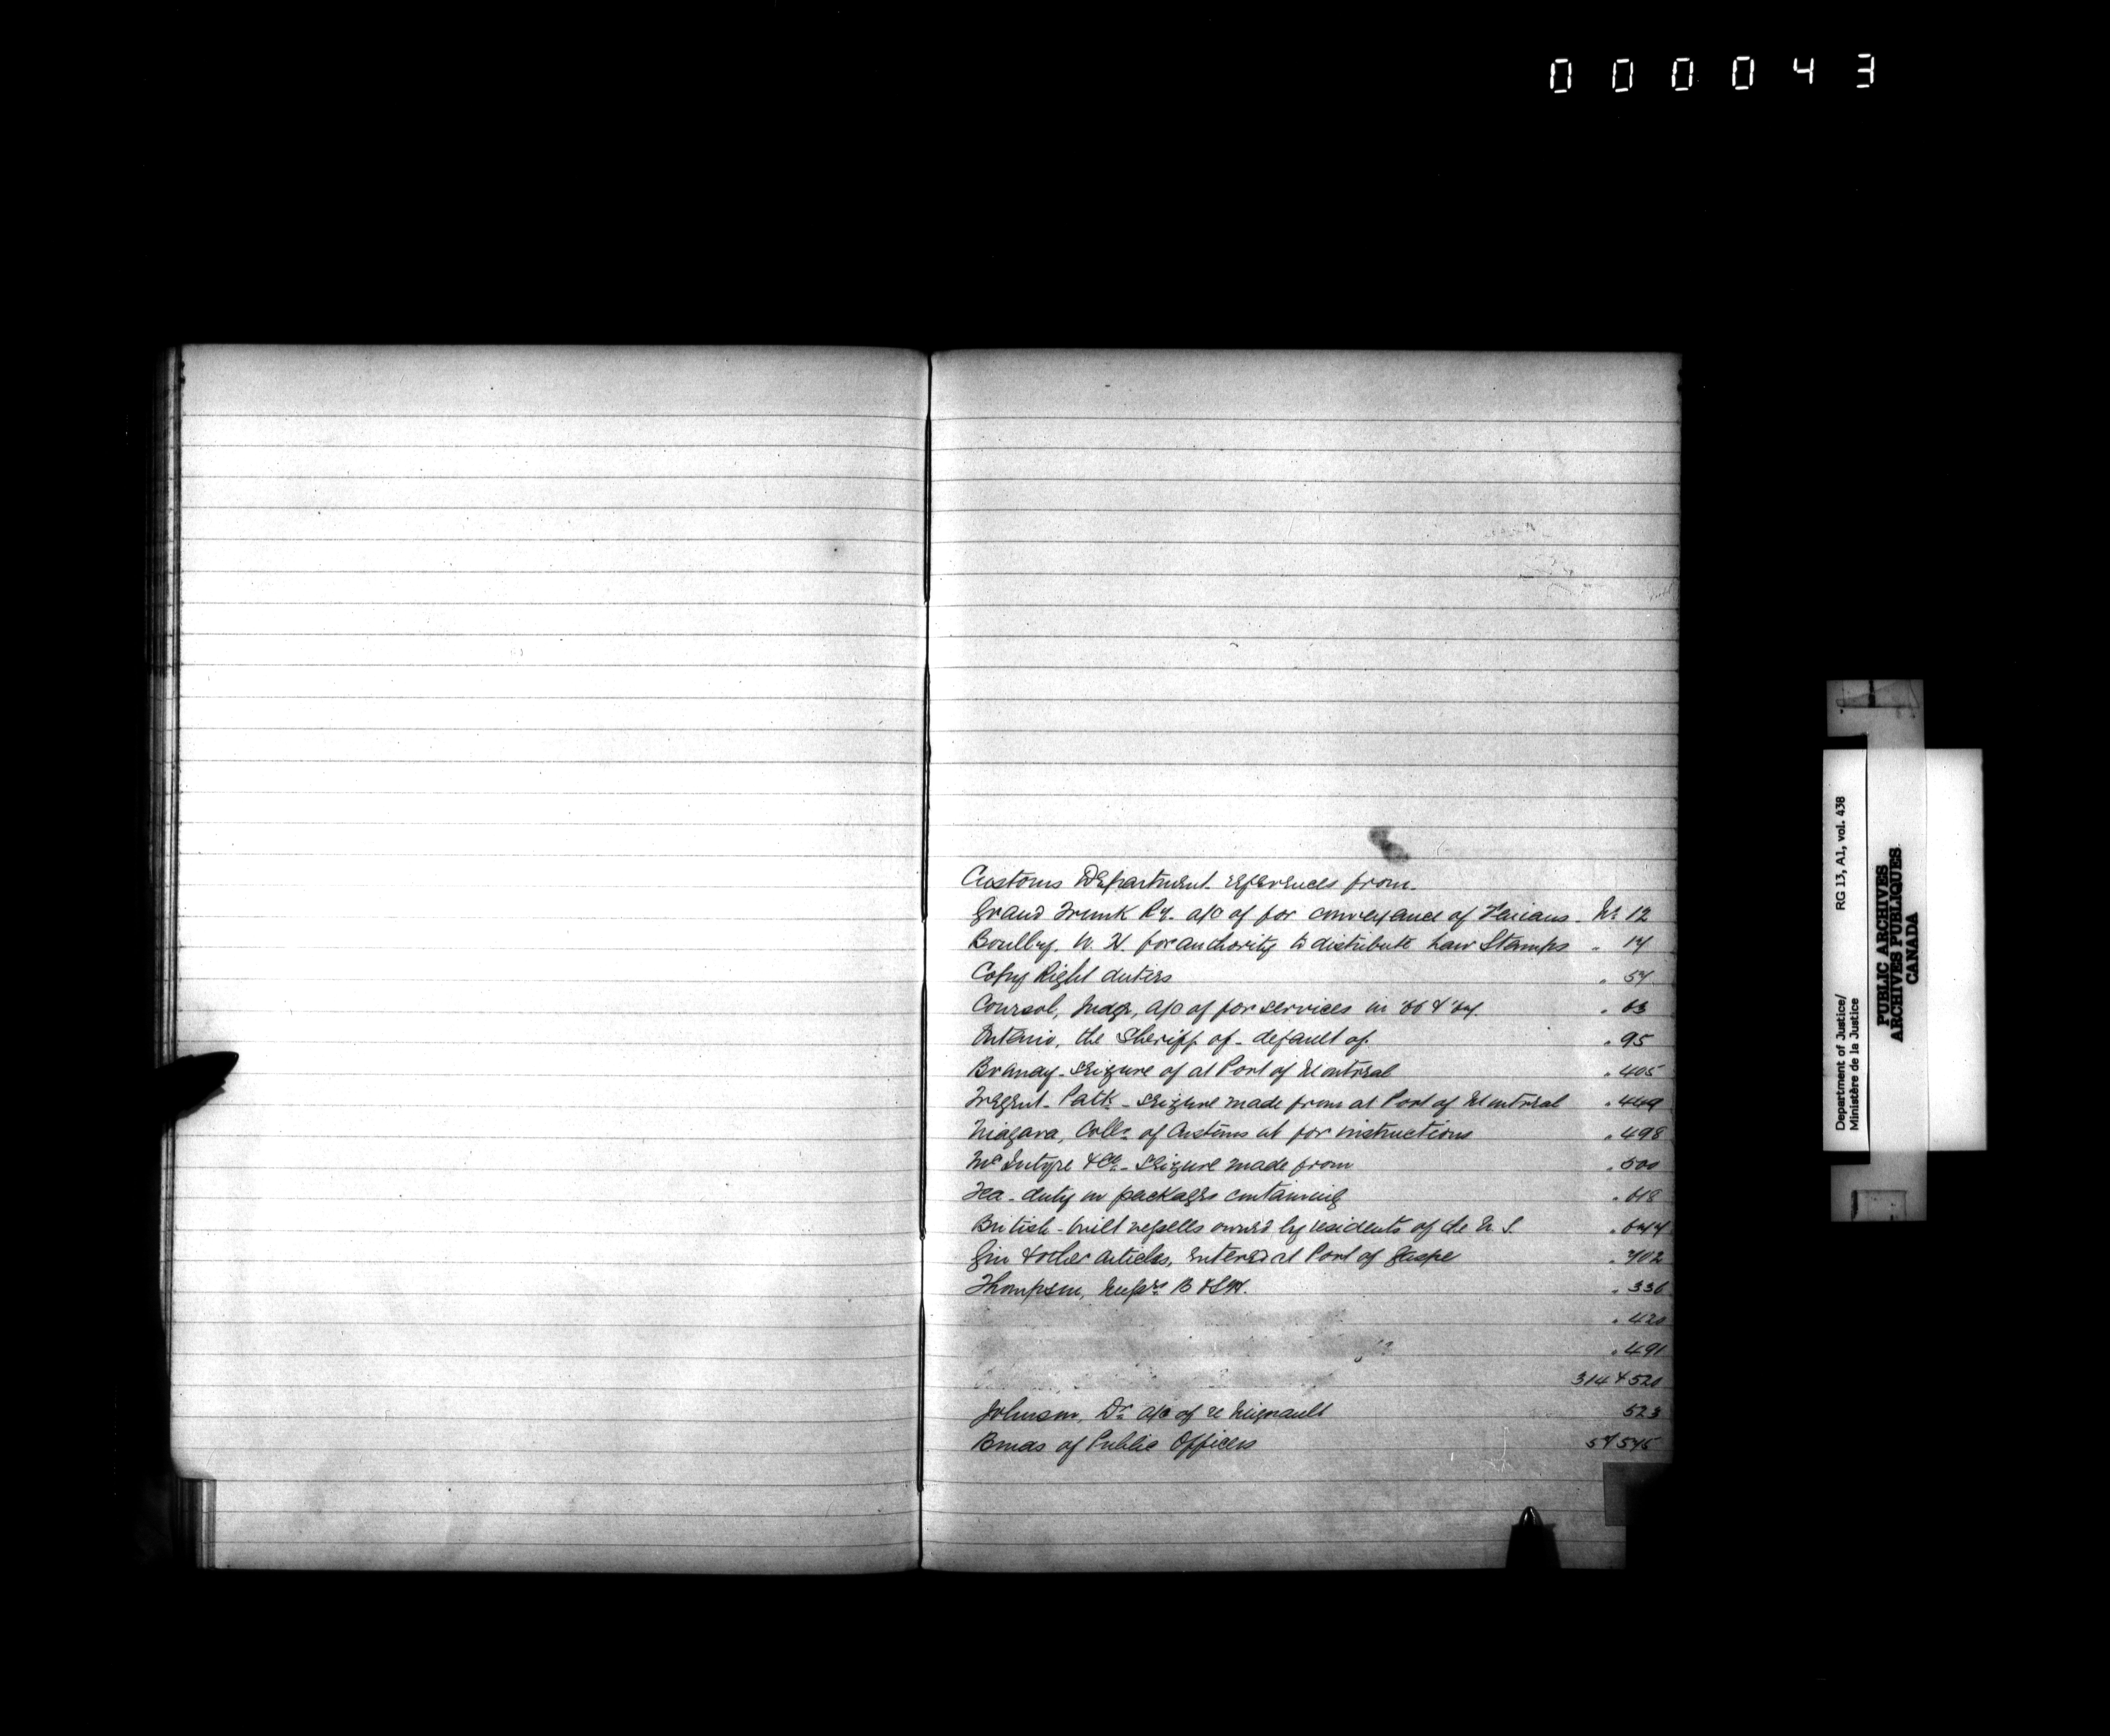 000043
Customs Department references from.
Grand Trunk Ry. a/c of for conveyance of Fenians. No 12
Boulby, W. H. for authority to distribute Law Stamps " 14
Copy Right duties " 57
Coursol, Judge, a/c of for services in '66 & '67. " 63
Ontario, the Sheriff of - default of " 95
Brandy - seizure of at Port of Montreal " 405
Patk - seizure made from at Port of Montreal " 449
Niagara, Collr of Customs at for instructions " 498
McIntyre & Co - Seizure made from " 500
Tea - duty on packages containing " 618
British - built vessells owned by residents of the U. S. " 644
Gin & other articles, entered at Port of Gaspe " 702
Thompson, Messrs B & " 336
" 420
" 491
314 & 520
Johnson, Dr a/c of re 523
of Public Officers 57 545
Department of Justice/ RG 13, A1, vol. 438
Ministère de la Justice
PUBLIC ARCHIVES
ARCHIVES PUBLIQUES
CANADA